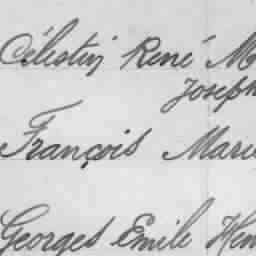 Célestin René M
Joseph
François Marie
Georges Emile Hen